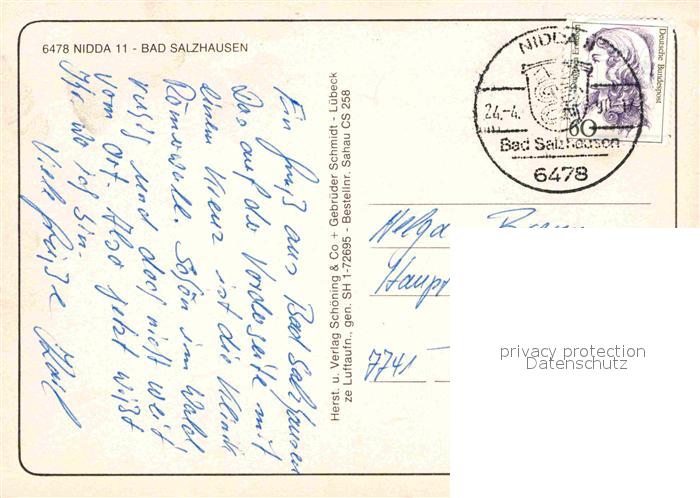 6478 NIDDA 11 - BAD SALZHAUSEN
Ein Gruß aus Bad Salzhausen
Das auf der Vorderseite mit
einem Kreuz ist die Klinik
Römerwall. Schön im Wald
ruhig und doch nicht weit
vom Ort. Also jetzt wißt
Ihr wo ich bin
Viele Grüße
Herst. u. Verlag Schöning & Co + Gebrüder Schmidt - Lübeck
ze Luftaufn., gen. SH 1-72695 - Bestellnr. Sahau CS 258
NIDDA 11
24.-4.
Bad Salzhausen
6478
Deutsche Bundespost
60
Helga
Haupt
7741
privacy protection
Datenschutz